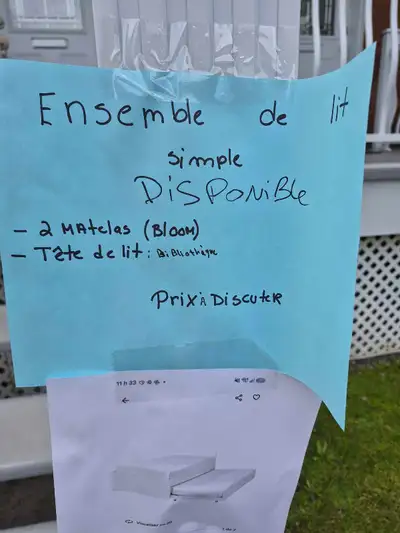 Ensemble de lit
simple
DiSPONiBLE
- 2 MAtelas (BLOOM)
- Tête de lit : BiBliothèque
PRiX À DiscuteR
11 h 33